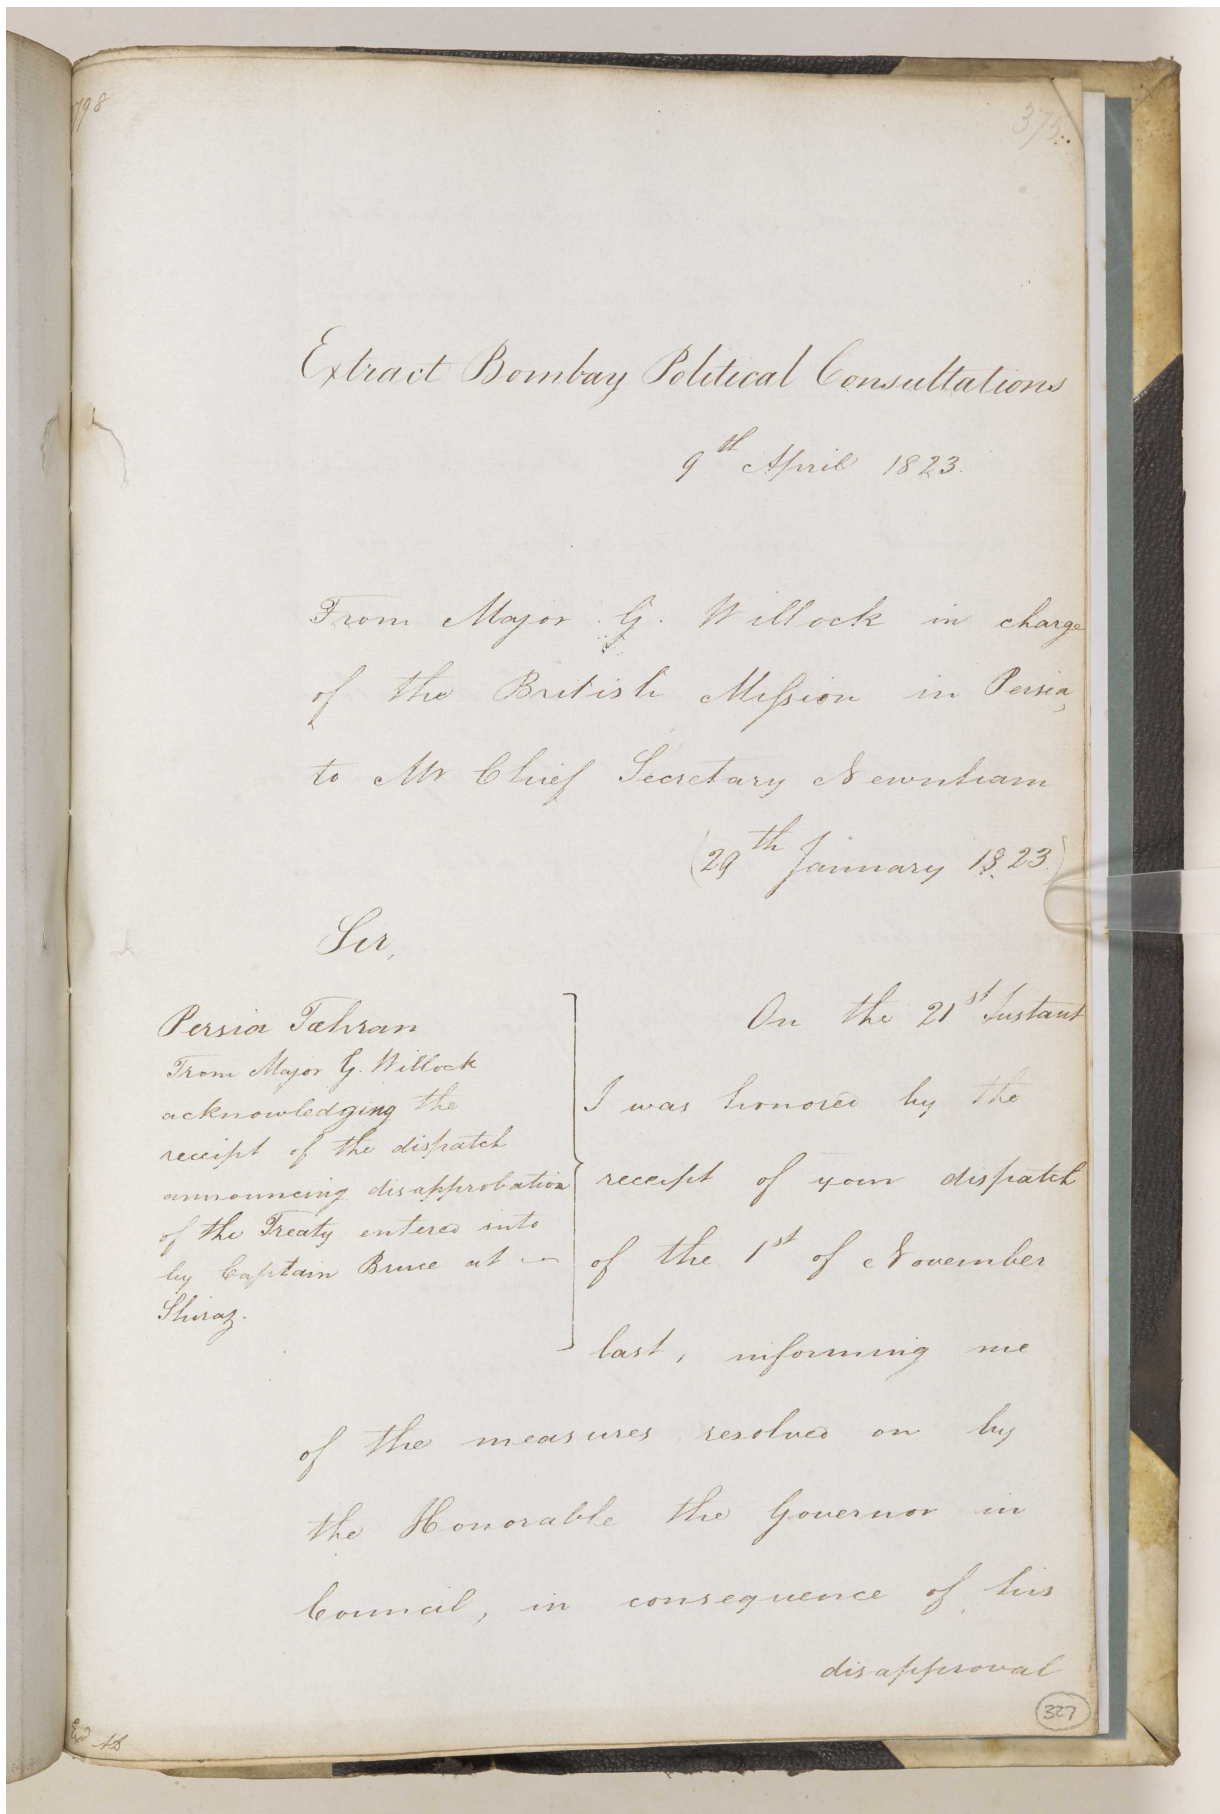 798
375
Extract Bombay Political Consultations
9th April 1823.
From Major G. Willock in charge
of the British Mission in Persia,
to Mr Chief Secretary Newnham
(29th January 1823.)
Sir,
Persia Tæhran
From Major G. Willock
acknowledging the
receipt of the dispatch
announcing disapprobation
of the Treaty entered into
by Captain Bruce at
Shiraz.
On the 21st Instant
I was honored by the
receipt of your dispatch
of the 1st of November
last, informing me
of the measures resolved on by
the Honorable the Governor in
Council, in consequence of his
disapproval
327
Exd